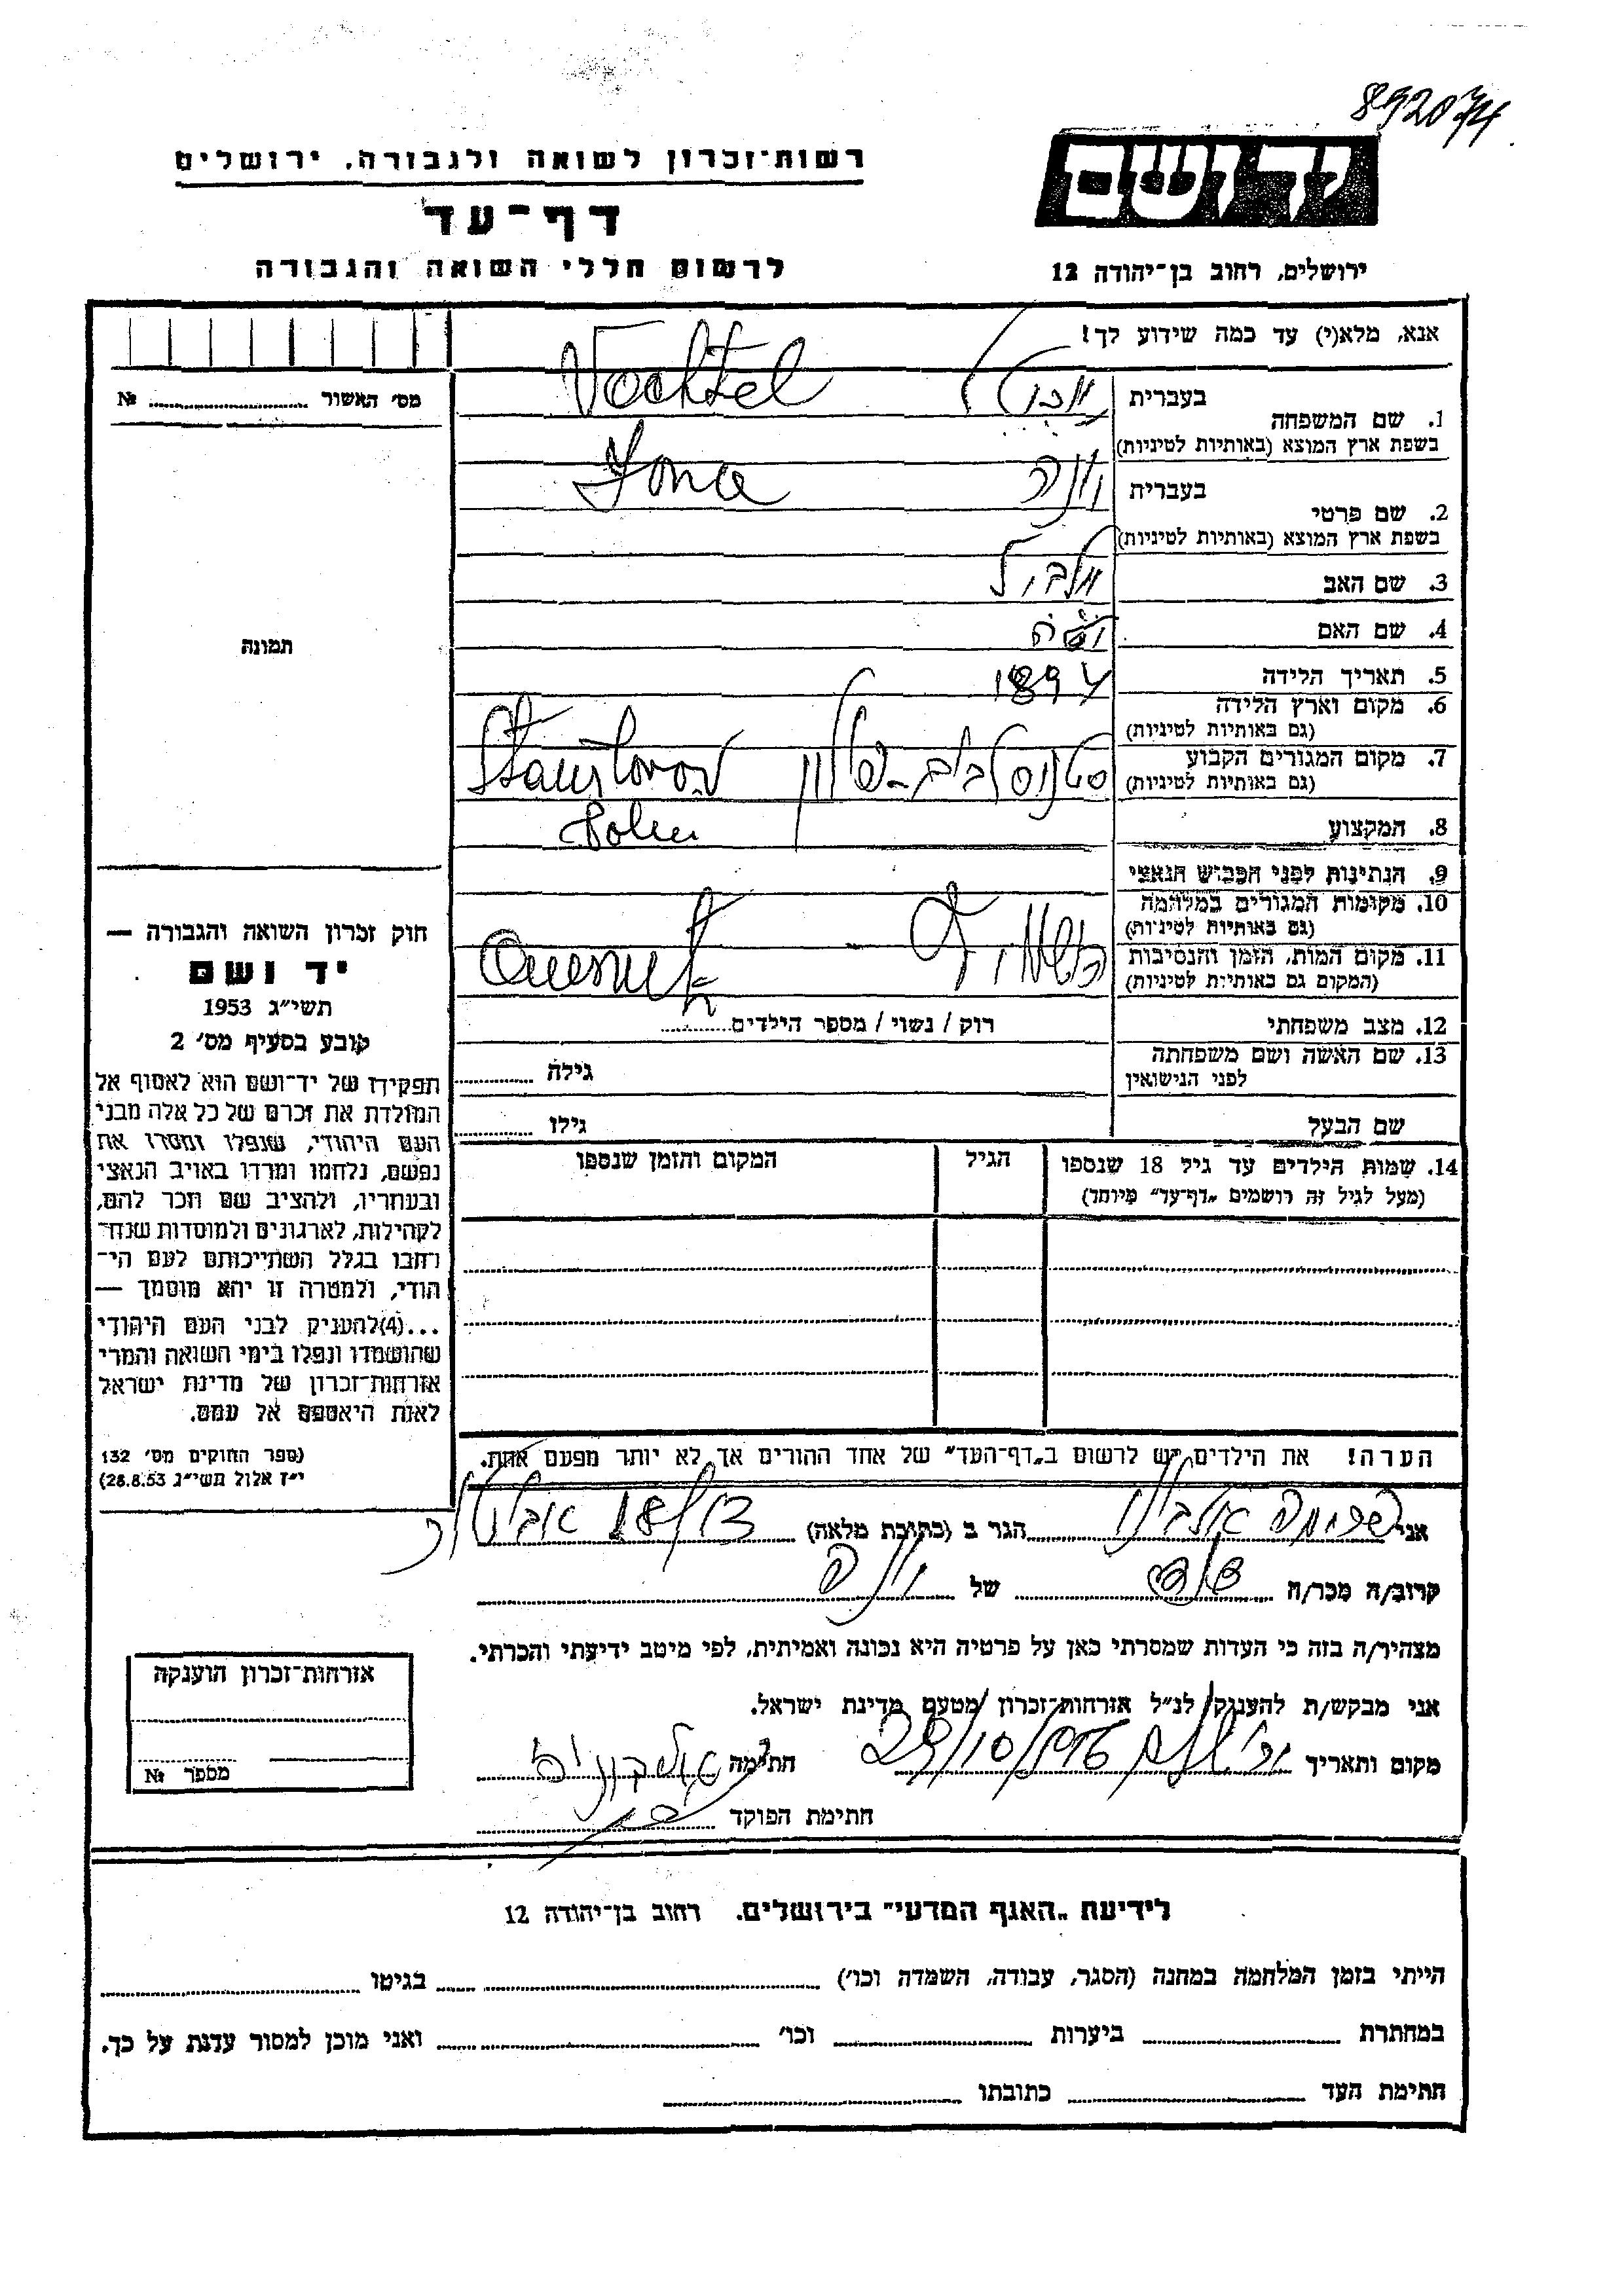 892074
רשות־זכרון לשואה ולגבורה, ירושלים
דף־עד
לרשום חללי השואה והגבורה
יד ושם
ירושלים, רחוב בן־יהודה 12
אנא, מלא(י) עד כמה שידוע לך!
מס׳ האשור № 
1. שם המשפחה
בעברית
בשפת ארץ המוצא (באותיות לטיניות)
Vachtel
2. שם פרטי
בעברית יונה
בשפת ארץ המוצא (באותיות לטיניות)
Iona
3. שם האב
4. שם האם
5. תאריך הלידה 1894
6. מקום וארץ הלידה
(גם באותיות לטיניות)
7. מקום המגורים הקבוע
(גם באותיות לטיניות)
סטניסלבוב - פולין
8. המקצוע
9. הנתינות לפני הכבוש הנאצי
10. מקומות המגורים במלחמה
(גם באותיות לטיניות)
11. מקום המות, הזמן והנסיבות
(המקום גם באותיות לטיניות)
12. מצב משפחתי
רוק / נשוי / מספר הילדים
13. שם האשה ושם משפחתה
לפני הנישואין
גילה
שם הבעל
גילו
14. שמות הילדים עד גיל 18 שנספו
(מעל לגיל זה רושמים „דף־עד” מיוחד)
הגיל
המקום והזמן שנספו
הערה! את הילדים יש לרשום ב„דף־העד” של אחד ההורים אך לא יותר מפעם אחת.
תמונה
חוק זכרון השואה והגבורה —
יד ושם
תשי״ג 1953
קובע בסעיף מס׳ 2
תפקידו של יד־ושם הוא לאסוף אל
המולדת את זכרם של כל אלה מבני
העם היהודי, שנפלו ומסרו את
נפשם, נלחמו ומרדו באויב הנאצי
ובעוזריו, ולהציב שם וזכר להם,
לקהילות, לארגונים ולמוסדות שנח־
רחבו בגלל השתייכותם לעם הי־
הודי, ולמטרה זו יהא מוסמך —
...(4)להעניק לבני העם היהודי
שהושמדו ונפלו בימי השואה והמרי
אזרחות־זכרון של מדינת ישראל
לאות היאספם אל עמם.
(ספר החוקים מס׳ 132
י״ז אלול תשי״ג 28.8.53)
אני הגר ב (כתובת מלאה)
קרוב/ה מכר/ה של יונה
מצהיר/ה בזה כי העדות שמסרתי כאן על פרטיה היא נכונה ואמיתית, לפי מיטב ידיעתי והכרתי.
אני מבקש/ת להעניק לנ״ל אזרחות־זכרון מטעם מדינת ישראל.
מקום ותאריך חתימה
חתימת הפוקד
אזרחות־זכרון הוענקה
מספר №
לידיעת „האגף המדעי” בירושלים. רחוב בן־יהודה 12
הייתי בזמן המלחמה במחנה (הסגר, עבודה, השמדה וכו׳) בגיטו
במחתרת ביערות וכו׳ ואני מוכן למסור עדות על כך.
חתימת העד כתובתו